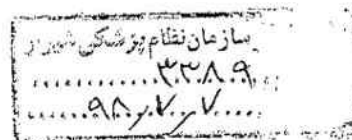 سازمان نظام پزشکی شیراز
۳۳۸۰۹
۹۸٫۷٫۷